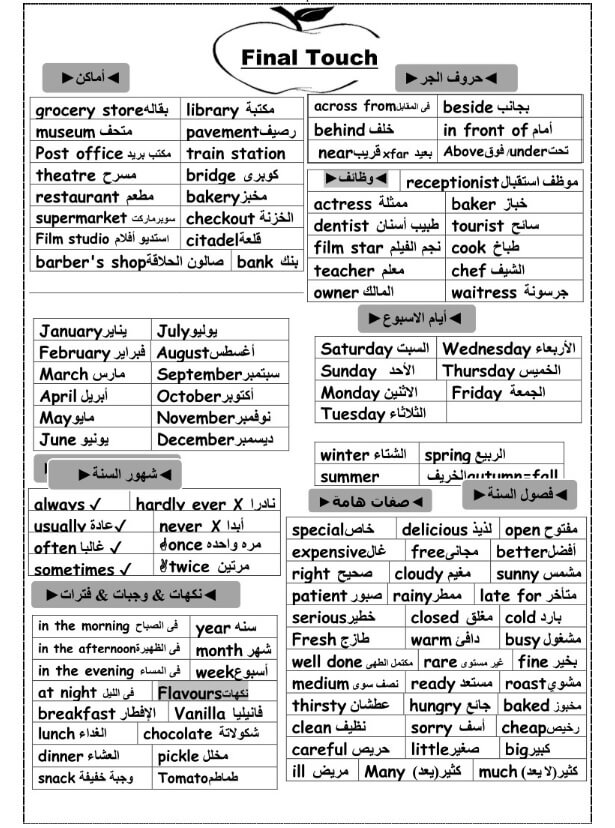 Final Touch
◄أماكن►
grocery store بقاله library مكتبة
museum متحف pavement رصيف
Post office مكتب بريد train station
theatre مسرح bridge كوبرى
restaurant مطعم bakery مخبز
supermarket سوبرماركت checkout الخزنة
Film studio استديو أفلام citadel قلعة
barber's shop صالون الحلاقة bank بنك
◄حروف الجر►
across from فى المقابل beside بجانب
behind خلف in front of أمام
near قريب xfar بعيد Above فوق /under تحت
◄وظائف► receptionist موظف استقبال
actress ممثلة baker خباز
dentist طبيب أسنان tourist سائح
film star نجم الفيلم cook طباخ
teacher معلم chef الشيف
owner المالك waitress جرسونة
January يناير July يوليو
February فبراير August أغسطس
March مارس September سبتمبر
April أبريل October أكتوبر
May مايو November نوفمبر
June يونيو December ديسمبر
◄شهور السنة►
◄أيام الاسبوع►
Saturday السبت Wednesday الأربعاء
Sunday الأحد Thursday الخميس
Monday الاثنين Friday الجمعة
Tuesday الثلاثاء
winter الشتاء spring الربيع
summer autumn=fall الخريف
◄فصول السنة►
always ✓ hardly ever X نادرا
usually عادة ✓ never X أبدا
often غالبا ✓ once مره واحده
sometimes ✓ twice مرتين
◄نكهات & وجبات & فترات►
in the morning فى الصباح year سنه
in the afternoon فى الظهيرة month شهر
in the evening فى المساء week أسبوع
at night فى الليل Flavours نكهات
breakfast الإفطار Vanilla فانيليا
lunch الغداء chocolate شكولاتة
dinner العشاء pickle مخلل
snack وجبة خفيفة Tomato طماطم
◄صفات هامة►
special خاص delicious لذيذ open مفتوح
expensive غال free مجانى better أفضل
right صحيح cloudy مغيم sunny مشمس
patient صبور rainy ممطر late for متأخر
serious خطير closed مغلق cold بارد
Fresh طازج warm دافئ busy مشغول
well done مكتمل الطهى rare غير مستوى fine بخير
medium نصف سوى ready مستعد roast مشوي
thirsty عطشان hungry جائع baked مخبوز
clean نظيف sorry أسف cheap رخيص
careful حريص little صغير big كبير
ill مريض Many كثير(يعد) much كثير(لا يعد)